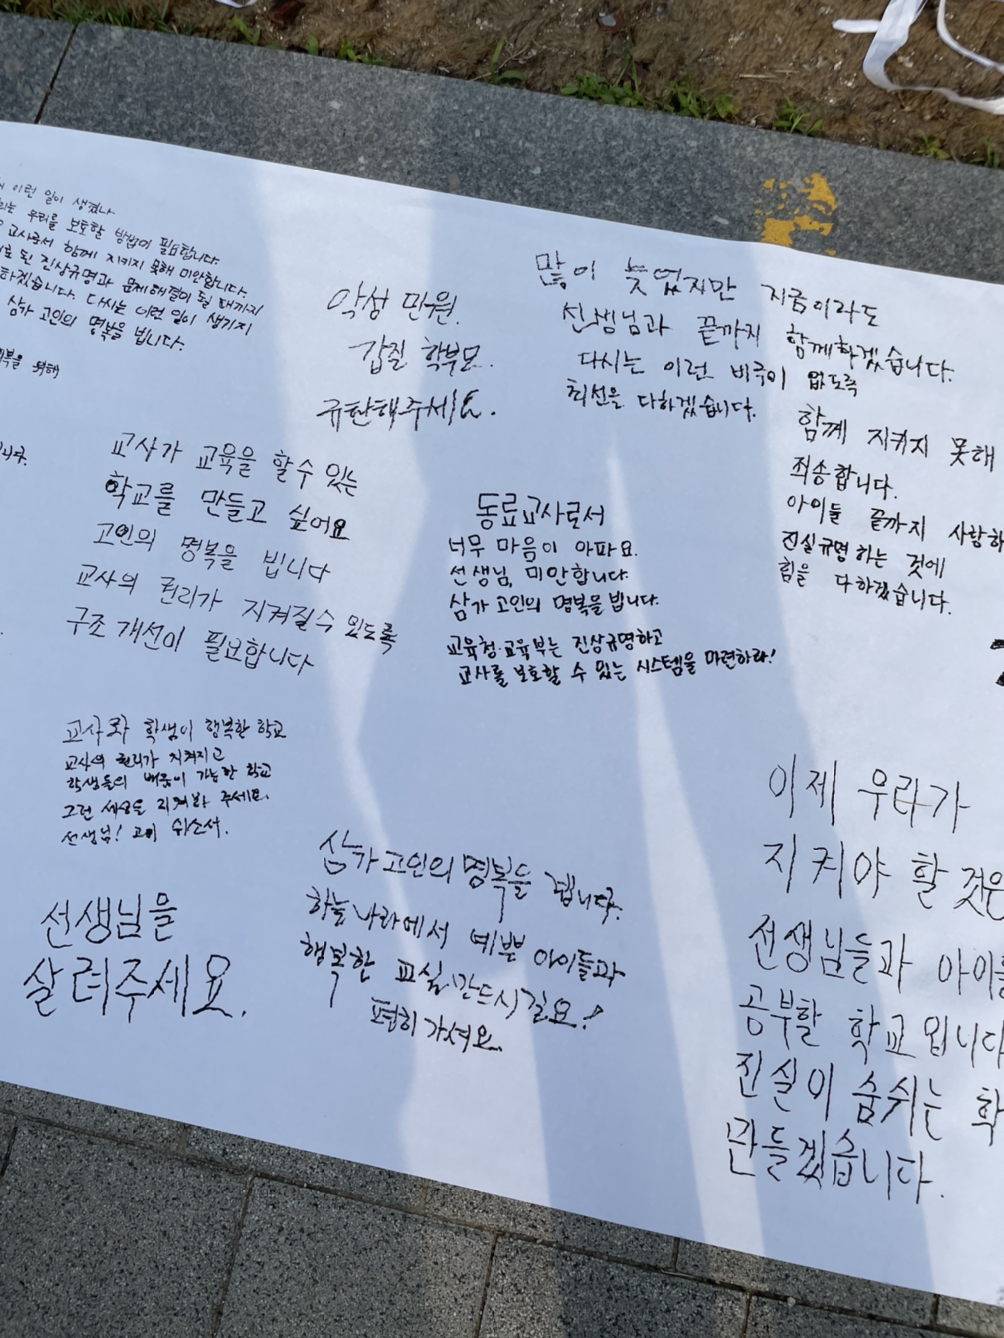 이런 일이 생겼나
는 우리를 보호할 방법이 필요합니다
교사로서 함께 지키지 못해 미안합니다.
된 진상규명과 문제해결이 될 때까지
하겠습니다. 다시는 이런 일이 생기지
삼가 고인의 명복을 빕니다.
위해
악성 민원.
갑질 학부모.
규탄해주세요.
많이 늦었지만 지금이라도
선생님과 끝까지 함께하겠습니다.
다시는 이런 비극이 없도록
최선을 다하겠습니다.
함께 지키지 못해
죄송합니다.
아이들 끝까지 사랑하
진실규명 하는 것에
힘을 다하겠습니다.
교사가 교육을 할 수 있는
학교를 만들고 싶어요
고인의 명복을 빕니다
교사의 권리가 지켜질 수 있도록
구조 개선이 필요합니다
동료교사로서
너무 마음이 아파요.
선생님, 미안합니다.
삼가 고인의 명복을 빕니다.
교육청·교육부는 진상규명하고
교사를 보호할 수 있는 시스템을 마련하라!
교사와 학생이 행복한 학교
교사의 권리가 지켜지고
학생들의 배움이 가능한 학교
그런 세상을 지켜봐 주세요.
선생님! 고이 쉬소서.
선생님을
살려주세요.
삼가 고인의 명복을 빕니다.
하늘나라에서 예쁜 아이들과
행복한 교실 만드시길요!
편히 가셔요.
이제 우리가
지켜야 할 것은
선생님들과 아이들
공부할 학교입니다
진실이 숨쉬는 학
만들겠습니다.